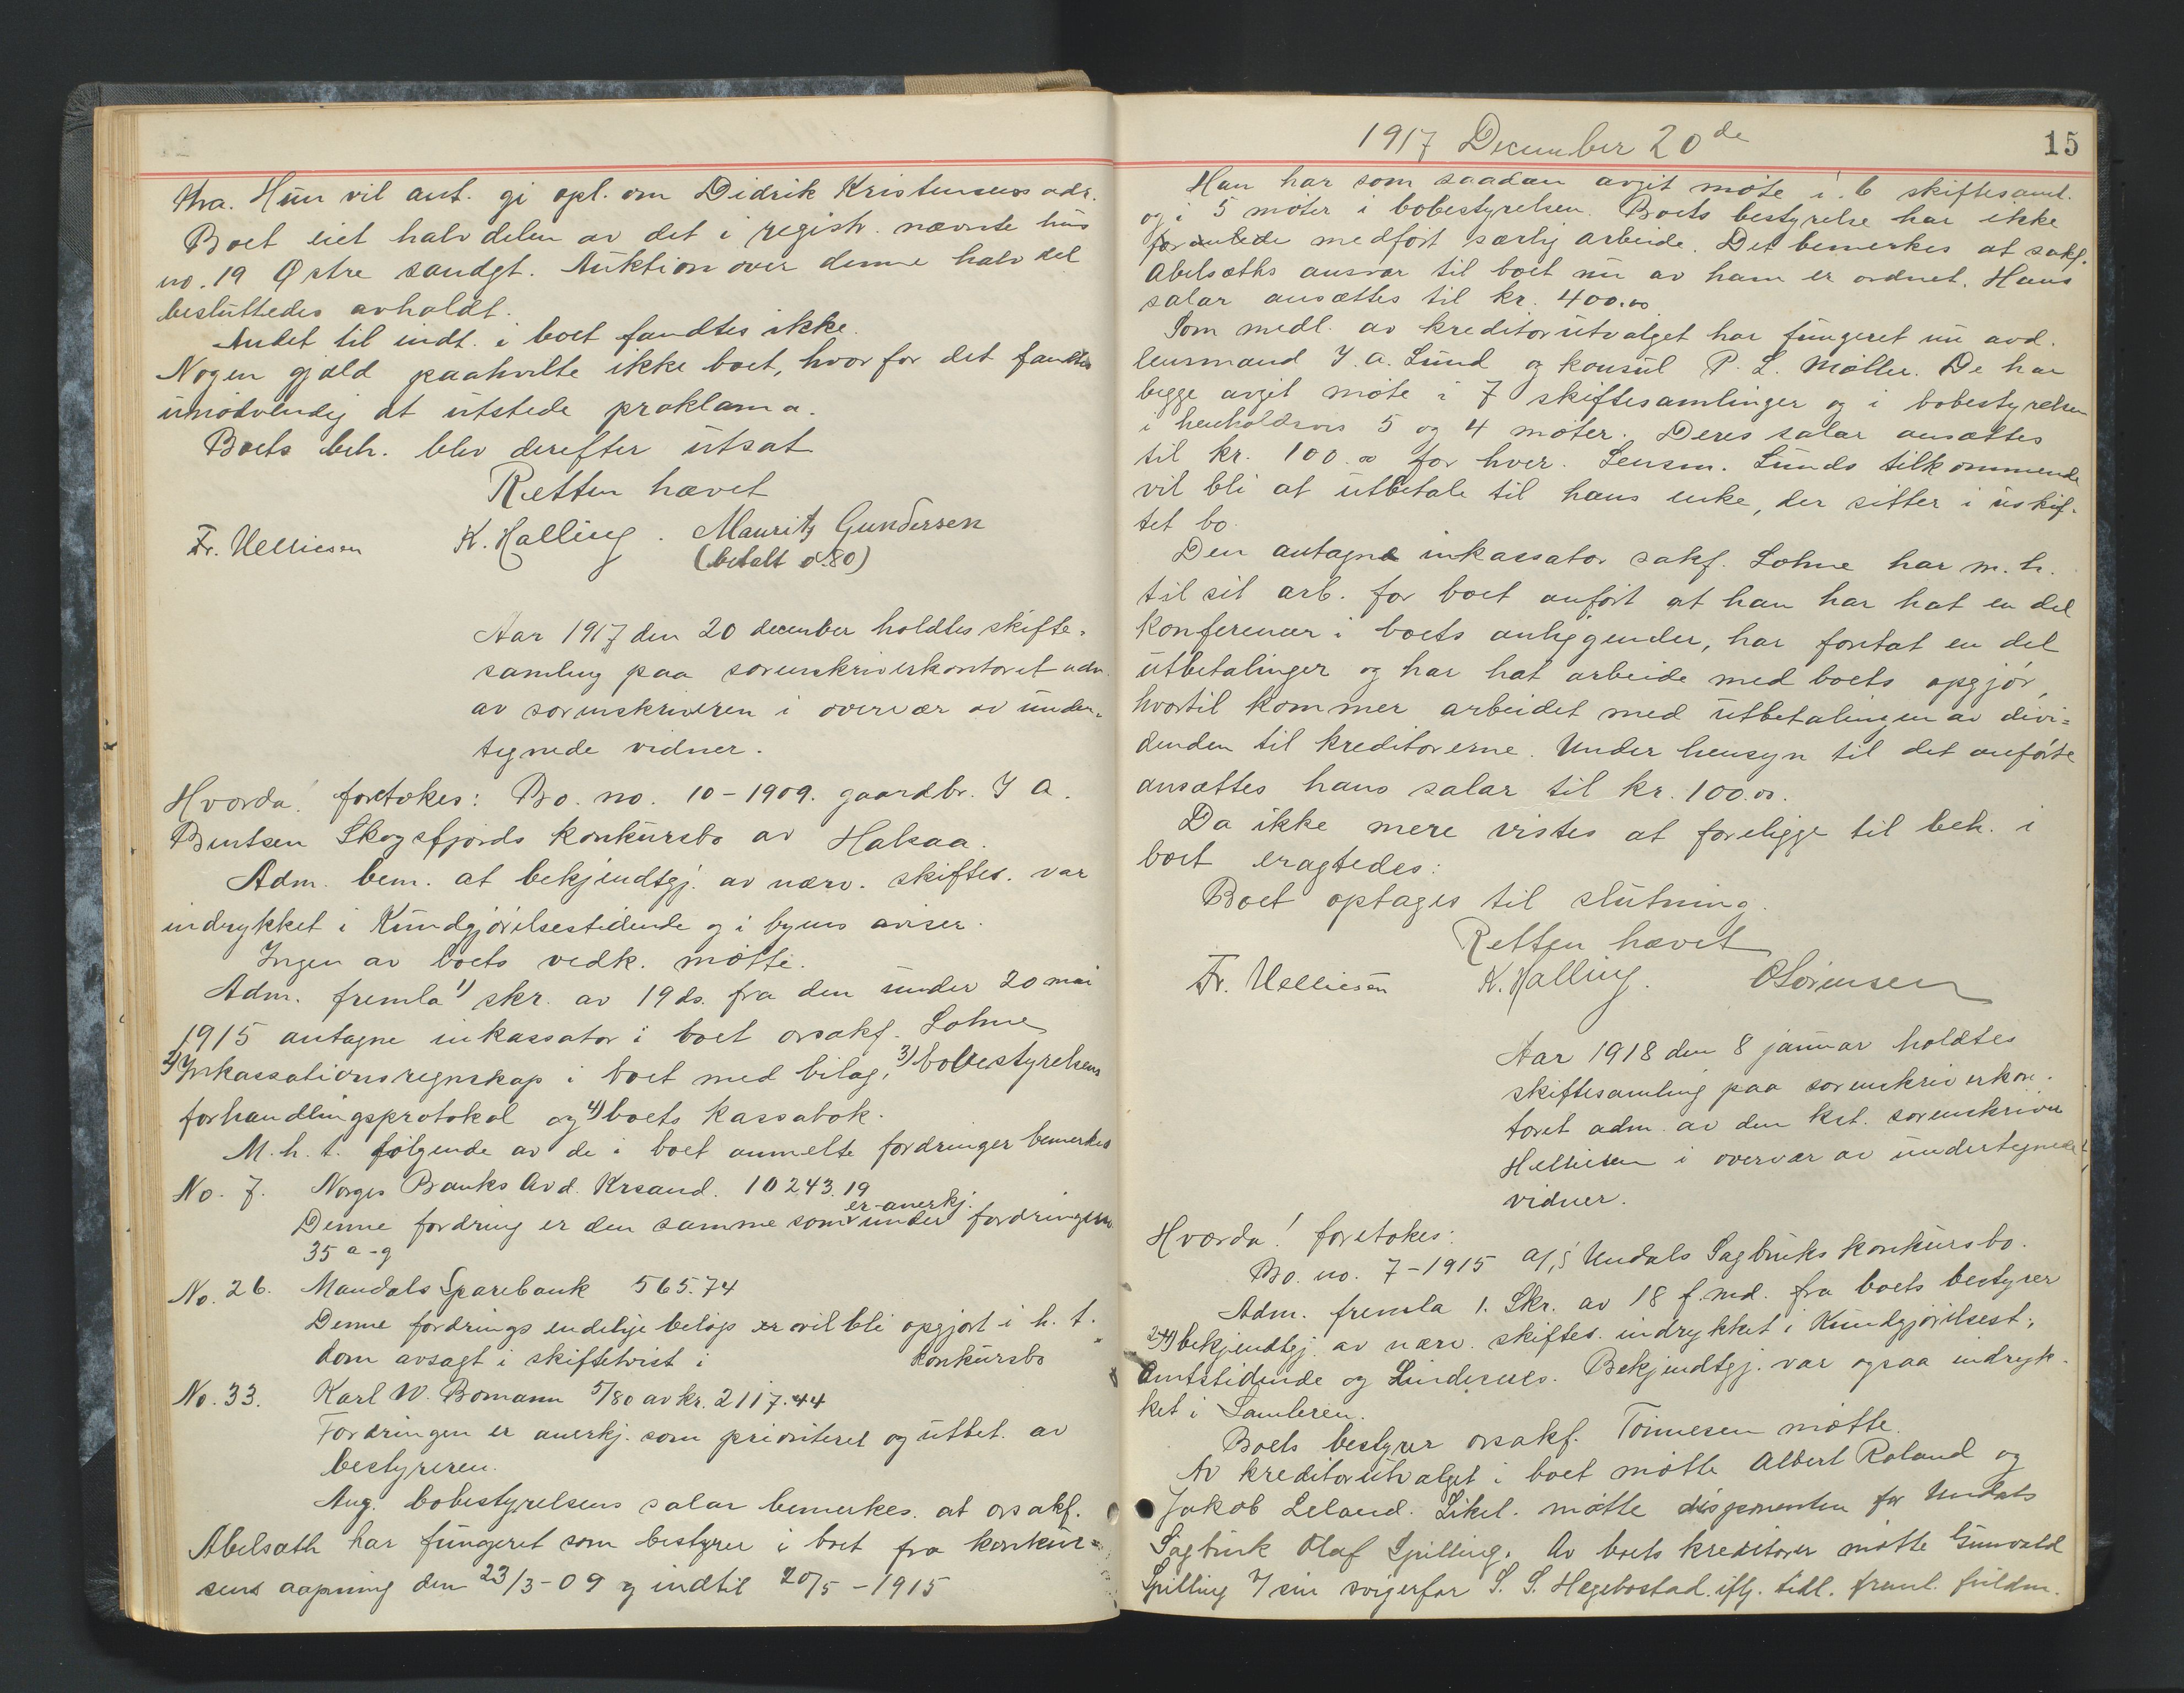 Mra. Hun vil ant. gi opl. om Didrik Kristensens adr.
Boet eiet halvdelen av det i registr. nævnte hus
no. 19 Østre sandgt. Auktion over denne halvdel
besluttedes avholdt.
Andet til indt. i boet fandtes ikke.
Nogen gjæld paahvilte ikke boet, hvorfor det fandtes
unødvendig at utstede proklama.
Boets beh. blev derefter utsat
Retten hævet
Fr. Helliesen K. Halling. Mauritz Gundersen
(betalt 0.80)
Aar 1917 den 20 december holdtes skifte-
samling paa sorenskriverkontoret adm.
av sorenskriveren i overvær av under-
tegnede vidner.
Hvorda! foretokes: Bo. no. 10-1909. gaardbr. J A.
Bentsen Skogsfjords konkursbo av Halsaa.
Adm. bem. at bekjendtgj. av nærv. skiftes. var
indrykket i Kundgjørelsestidende og i byens aviser.
Ingen av boets vedk. møtte.
Adm. fremla 1) skr. av 19 ds. fra den under 20 mai
1915 antagne inkassator i boet orsakf. Lohne
2) Inkassationsregnskap i boet med bilag, 3) bobestyrelsens
forhandlingsprotokol og 4) boets kassabok.
M. h. t. følgende av de i boet anmelte fordringer bemerkes
No. 7. Norges Banks Avd. Krsand. 10243.19
er anerkj.
Denne fordring er den samme som under fordringen
35 a-g
No. 26. Mandals Sparebank 565.74
Denne fordrings endelige beløp er vil bli opgjort i h. t.
dom avsagt i skiftetvist i konkursbo
No. 33. Karl W. Bomann 5/80 av kr. 2117.44
Fordringen er anerkj. som prioritert og utbet. av
bestyreren.
Ang. bobestyrelsens salar bemerkes at orsakf.
Abelsæth har fungeret som bestyrer i boet fra konkur-
sens aapning den 23/3-09 og indtil 20/5-1915
1917 December 20de
15
Han har som saadan avgit møte i 6 skiftesaml.
og i 5 møter i bobestyrelsen. Boets bestyrelse har ikke
foranledede medført særlig arbeide. Det bemerkes at sakf.
Abelsæths ansvar til boet nu av ham er ordnet. Hans
salar ansættes til kr. 400.00
Som medl. av kreditorutvalget har fungeret nu avd.
lensmand J. A. Lund og konsul P. L. Møller. De har
begge avgit møte i 7 skiftesamlinger og i bobestyrelsen
i henholdsvis 5 og 4 møter. Deres salar ansættes
til kr. 100.00 for hver. Lensm. Lunds tilkommende
vil bli at utbetale til hans enke, der sitter i uskif-
tet bo.
Den antagne inkassator sakf. Lohne har m. h.
til sit arb. for boet anført at han har hat en del
konferencer i boets anliggender, har foretat en del
utbetalinger og har hat arbeide med boets opgjør,
hvortil kommer arbeidet med utbetalingen av divi-
denden til kreditorerne. Under hensyn til det anførte
ansættes hans salar til kr. 100.00.
Da ikke mere vistes at foreligge til beh. i
boet eragtedes:
Boet optages til slutning.
Retten hævet
Fr. Helliesen K. Halling. O Sørensen
Aar 1918 den 8 januar holdtes
skiftesamling paa sorenskriverkon-
toret adm. av den kst. sorenskriver
Helliesen i overvær av undertegnede
vidner.
Hvorda! foretokes:
Bo. no. 7-1915 A/S Undals Sagbruks konkursbo.
Adm. fremla 1. Skr. av 18 f. md. fra boets bestyrer
2-4) bekjendtgj. av nærv. skiftes. indrykket i Kundgjørelsest.,
Amtstidende og Lindesnes. Bekjendtgj. var ogsaa indryk-
ket i Samleren.
Boets bestyrer orsakf. Tønnesen møtte.
Av kreditorutvalget i boet møtte Albert Roland og
Jakob Leland. Likel. møtte disponenten for Undals
Sagbruk Olaf Spilling. Av boets kreditorer møtte Gunvald
Spilling f sin svigerfar S. S. Hægebostad iflg. tidl. freml. fuldm.